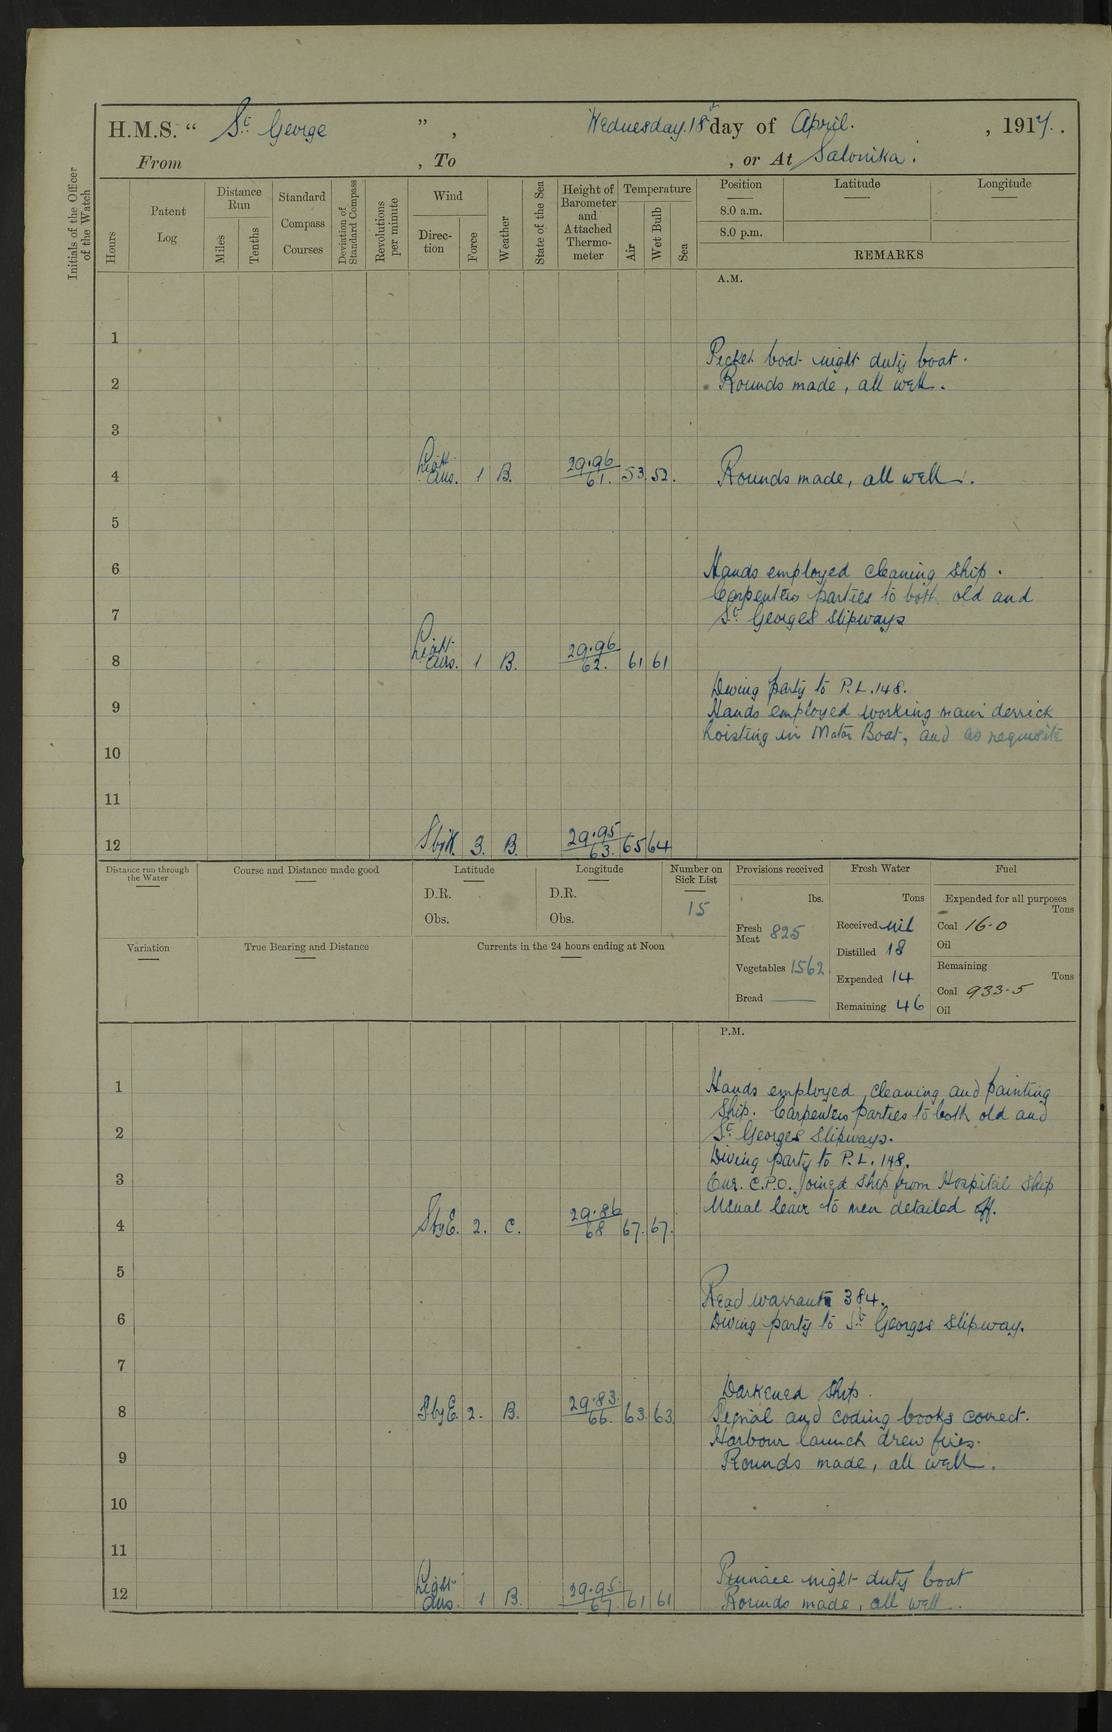 H.M.S. “ St George ” , Wednesday. 18th day of April. , 1917. .
From , To , or At Salonika.
Initials of the Officer of the Watch
Hours
Patent Log
Distance Run
Miles
Tenths
Standard Compass Courses
Deviation of Standard Compass
Revolutions per minute
Wind
Direction
Force
Weather
State of the Sea
Height of Barometer and Attached Thermometer
Temperature
Air
Wet Bulb
Sea
Position Latitude Longitude
8.0 a.m.
8.0 p.m.
REMARKS
A.M.
1
Picket boat night duty boat.
2 Rounds made, all well.
3
4 Light airs. 1 B. 29.96/61. 53. 52. Rounds made, all well.
5
6 Hands employed cleaning ship.
Carpenters parties to both old and
7 St Georges slipways
8 Light airs. 1 B. 29.96/62. 61 61
Diving party to P.L.148.
9 Hands employed working main derrick
hoisting in Motor Boat, and as requisite
10
11
12 SbyW. 3. B. 29.95/63. 65 64
Distance run through the Water
Course and Distance made good
Latitude
D.R.
Obs.
Longitude
D.R.
Obs.
Number on Sick List
15
Provisions received
lbs.
Fresh Meat 825
Vegetables 1562
Bread —
Fresh Water
Tons
Received nil
Distilled 18
Expended 14
Remaining 46
Fuel
Expended for all purposes
Tons
Coal 16.0
Oil
Remaining
Tons
Coal 933.5
Oil
Variation
True Bearing and Distance
Currents in the 24 hours ending at Noon
P.M.
1 Hands employed cleaning and painting
Ship. Carpenters parties to both old and
2 St Georges Slipways.
Diving party to P.L.148.
3 C.P.O. joined ship from Hospital Ship
Usual leave to men detailed off.
4 SbyE. 2. C. 29.86/68 67. 67.
5
Read warrant 384.
6 Diving party to St Georges slipway.
7
Darkened ship.
8 SbyE. 2. B. 29.83/66. 63. 63. Signal and coding books correct.
Harbour launch drew fires.
9 Rounds made, all well.
10
11
Pinnace night duty boat
12 Light airs. 1 B. 29.95/67 61 61 Rounds made, all well.